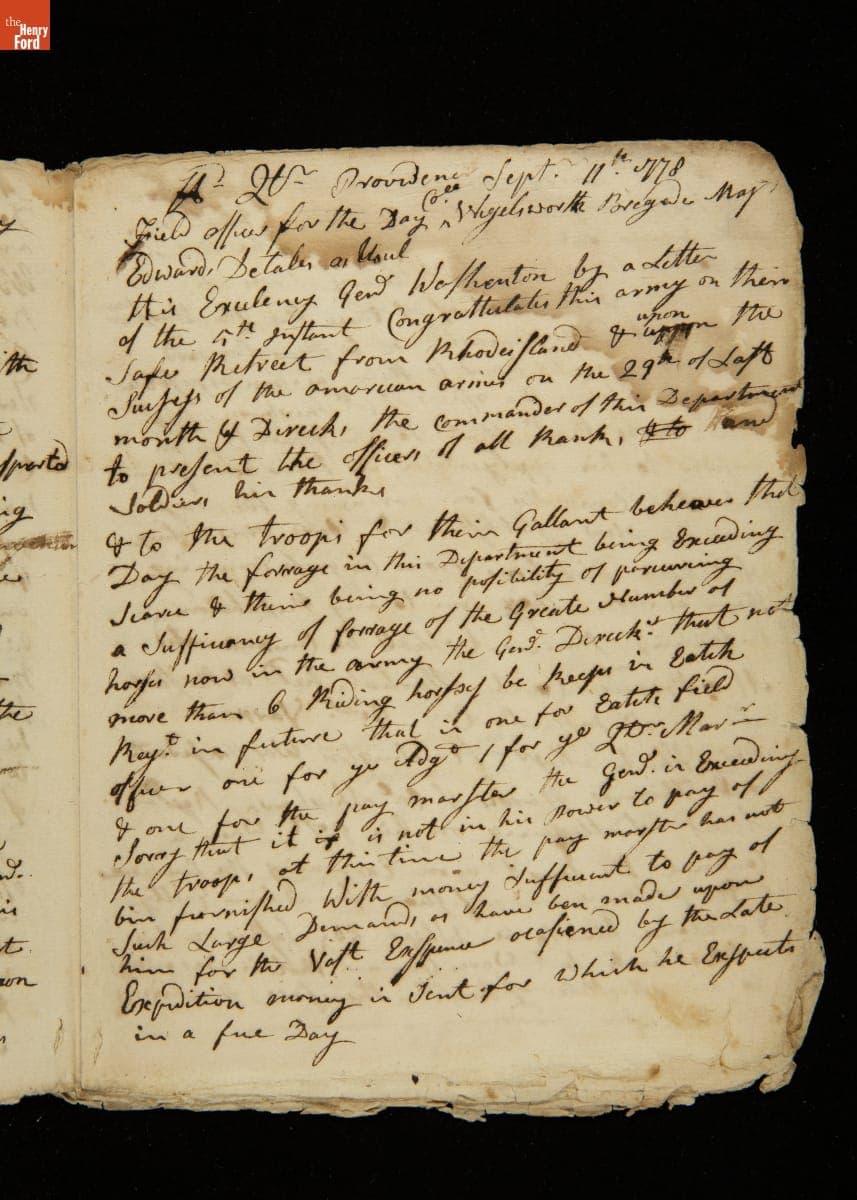 the
Henry
Ford
Hd Qtr Providenc Sept. 11th 1778
Field officer for the Day Coll Wigelsworth Breigade Majr
Edwards Detales as Usul
His Exculency Genl Washenton by a Letter
of the 5th Instant Congrattulates this army on their
Safe Retreet from Rhodeisland & upon the
Suckess of the amarican armes on the 29th of Last
month & Direcks the commander of this Department
to present the officers of all Ranks & to and
Soldiers his thanks
& to the troops for their Gallant behever that
Day the forrage in this Department being Exceeding
Scarce & their being no posibility of parcuring
a Suffitiancy of forrage of the Greate Number of
horses now in the army the Genl. Direckts that not
more than 6 Riding horses be keept in Eatch
Regt. in future that is one for Eatch field
officer one for ye Adgt 1 for ye Qtr Marsr
& one for the pay marster the Genl. is Exceeding
Sorry that it is is not in his Power to pay of
the troops at this time the pay marster has not
bin furnished With money Suffitient to pay of
Such Large Demands as have ben made upon
him for the Vast Exspence ocasiened by the Late
Expedition money is Sent for which he Exspects
in a fue Day
ith
sported
ing
the